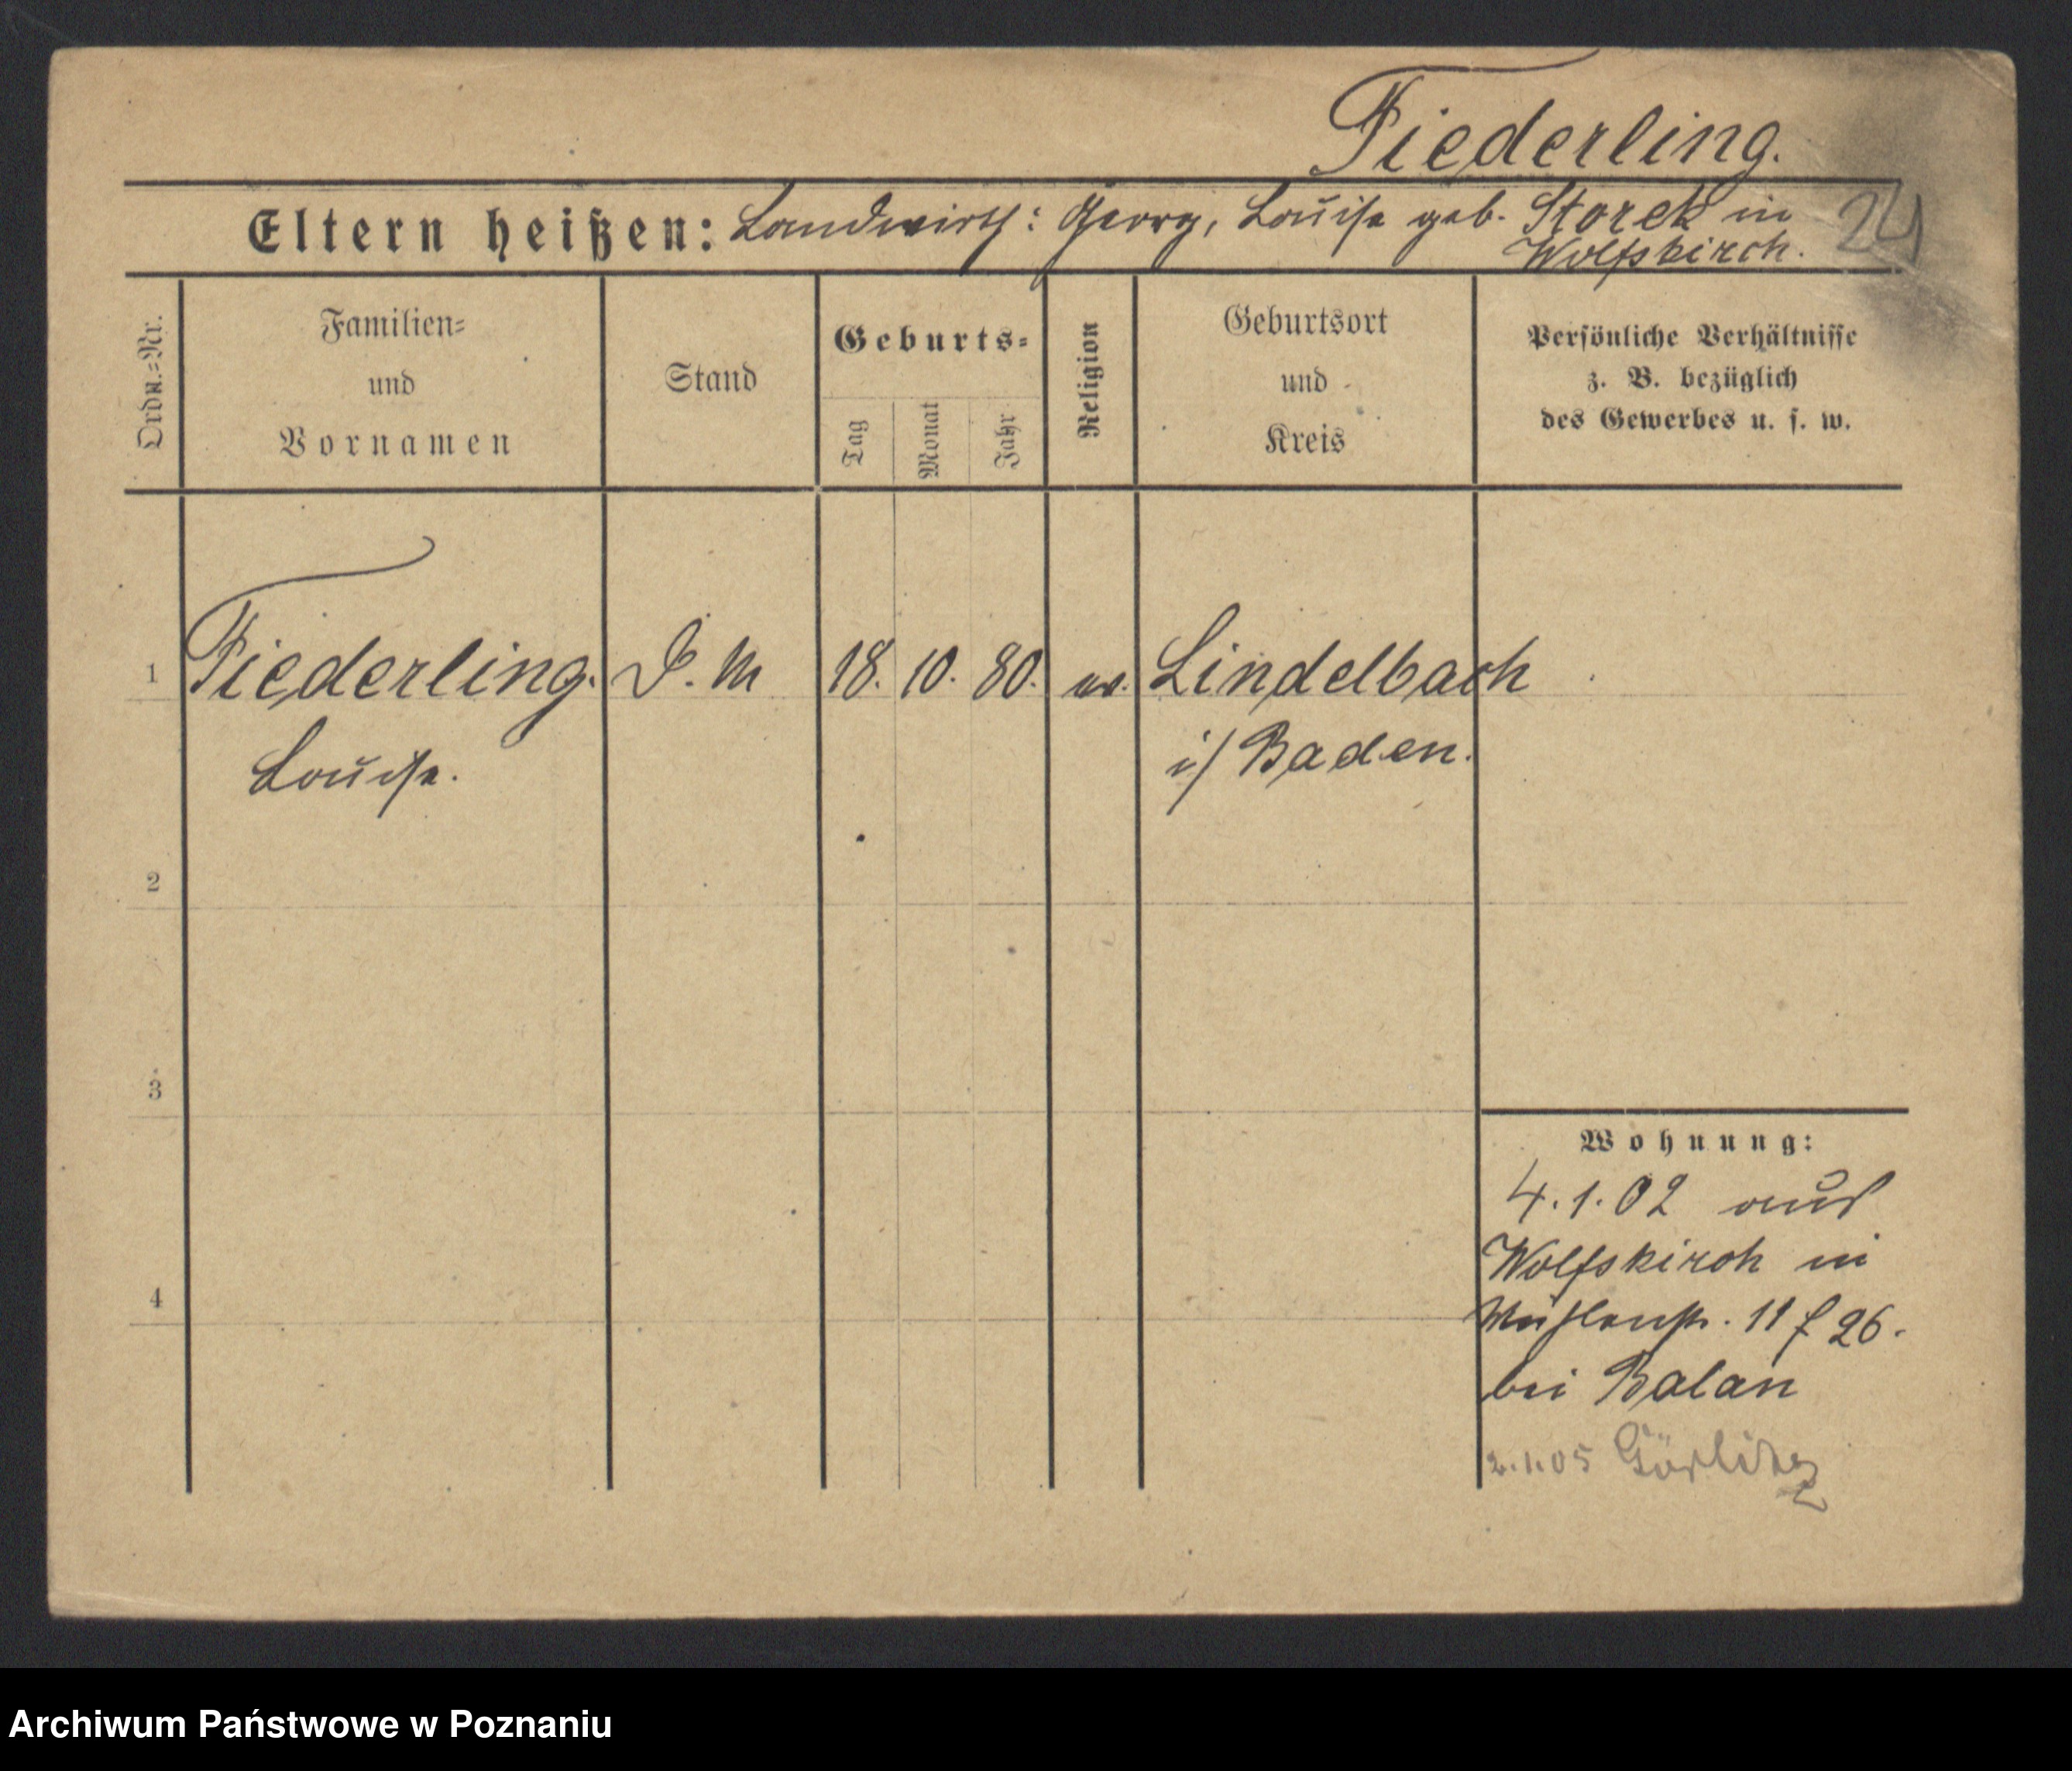 Fiederling.
Eltern heißen: Landwirth: Georg, Louise geb. Storek in
Wolfskirch.
24
Ordn.=Nr.
Familien=
und
Vornamen
Stand
Geburts=
Tag
Monat
Jahr
Religion
Geburtsort
und
Kreis
Persönliche Verhältnisse
z. B. bezüglich
des Gewerbes u. s. w.
1
Fiederling. D. M 18. 10. 80. ev. Lindelbach
Louise.
i/ Baden.
2
3
4
Wohnung:
4.1.02 aus
Wolfskirch in
11 26.
bei Balan
2.1.05 Görlitz
Archiwum Państwowe w Poznaniu